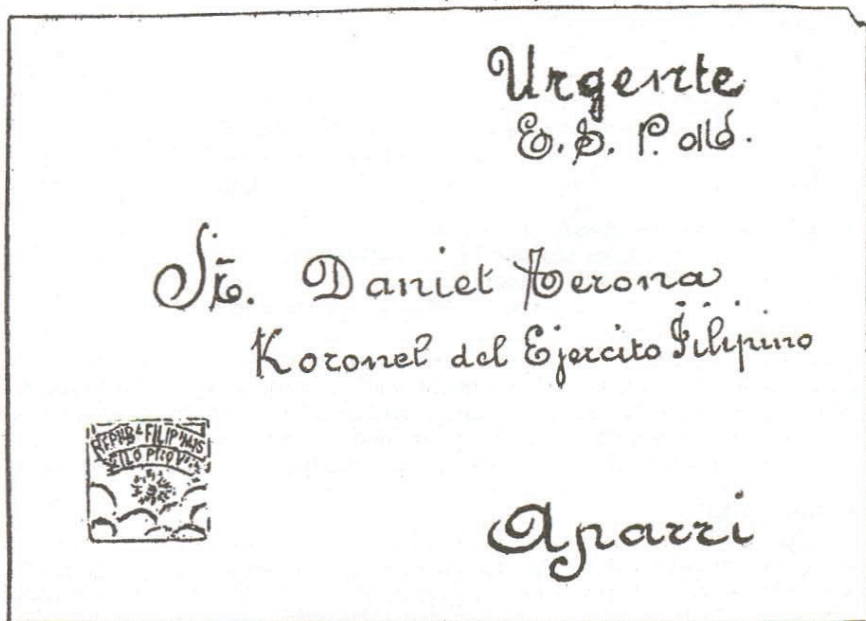 Urgente
E. S. P. olló.
Sr. Daniel Terona
Koronel del Ejercito Filipino
REPUB FILIPINAS
Aparri